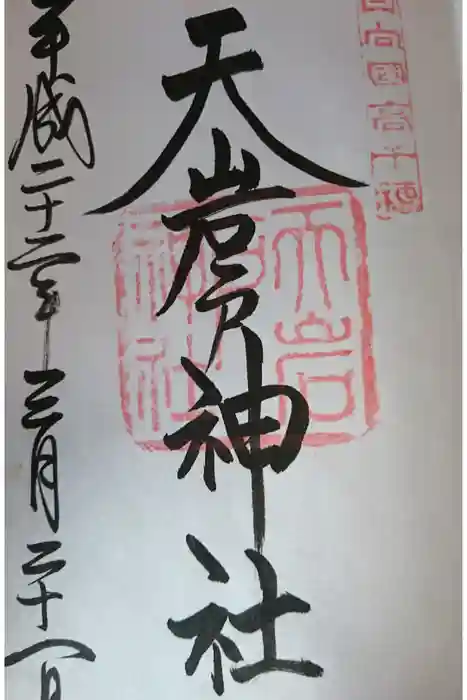 日向國高千穂
天岩戸神社
天岩戸神社
平成二十二年三月二十八日